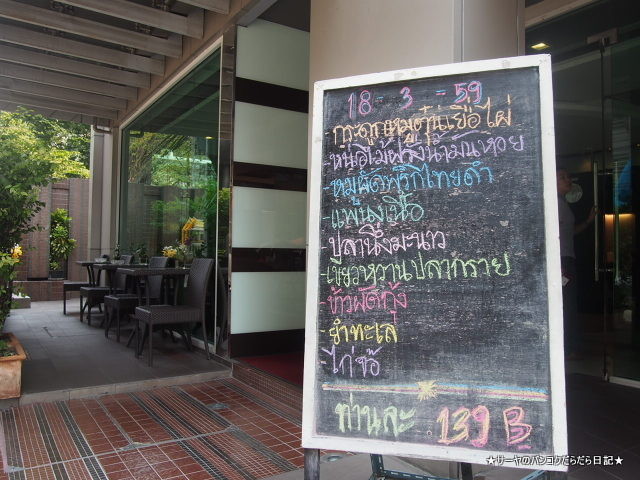 18 - 3 - 59
กระดูกหมูตุ๋นเยื่อไผ่
-หน่อไม้ฝรั่งน้ำมันหอย
-หมูผัดพริกไทยดำ
-แพนงเนื้อ
-ปลานึ่งมะนาว
-เขียวหวานปลากราย
-ข้าวผัดกุ้ง
-ยำทะเล
-ไก่
ท่านละ 139 B
★サーヤのバンコクだらだら日記★